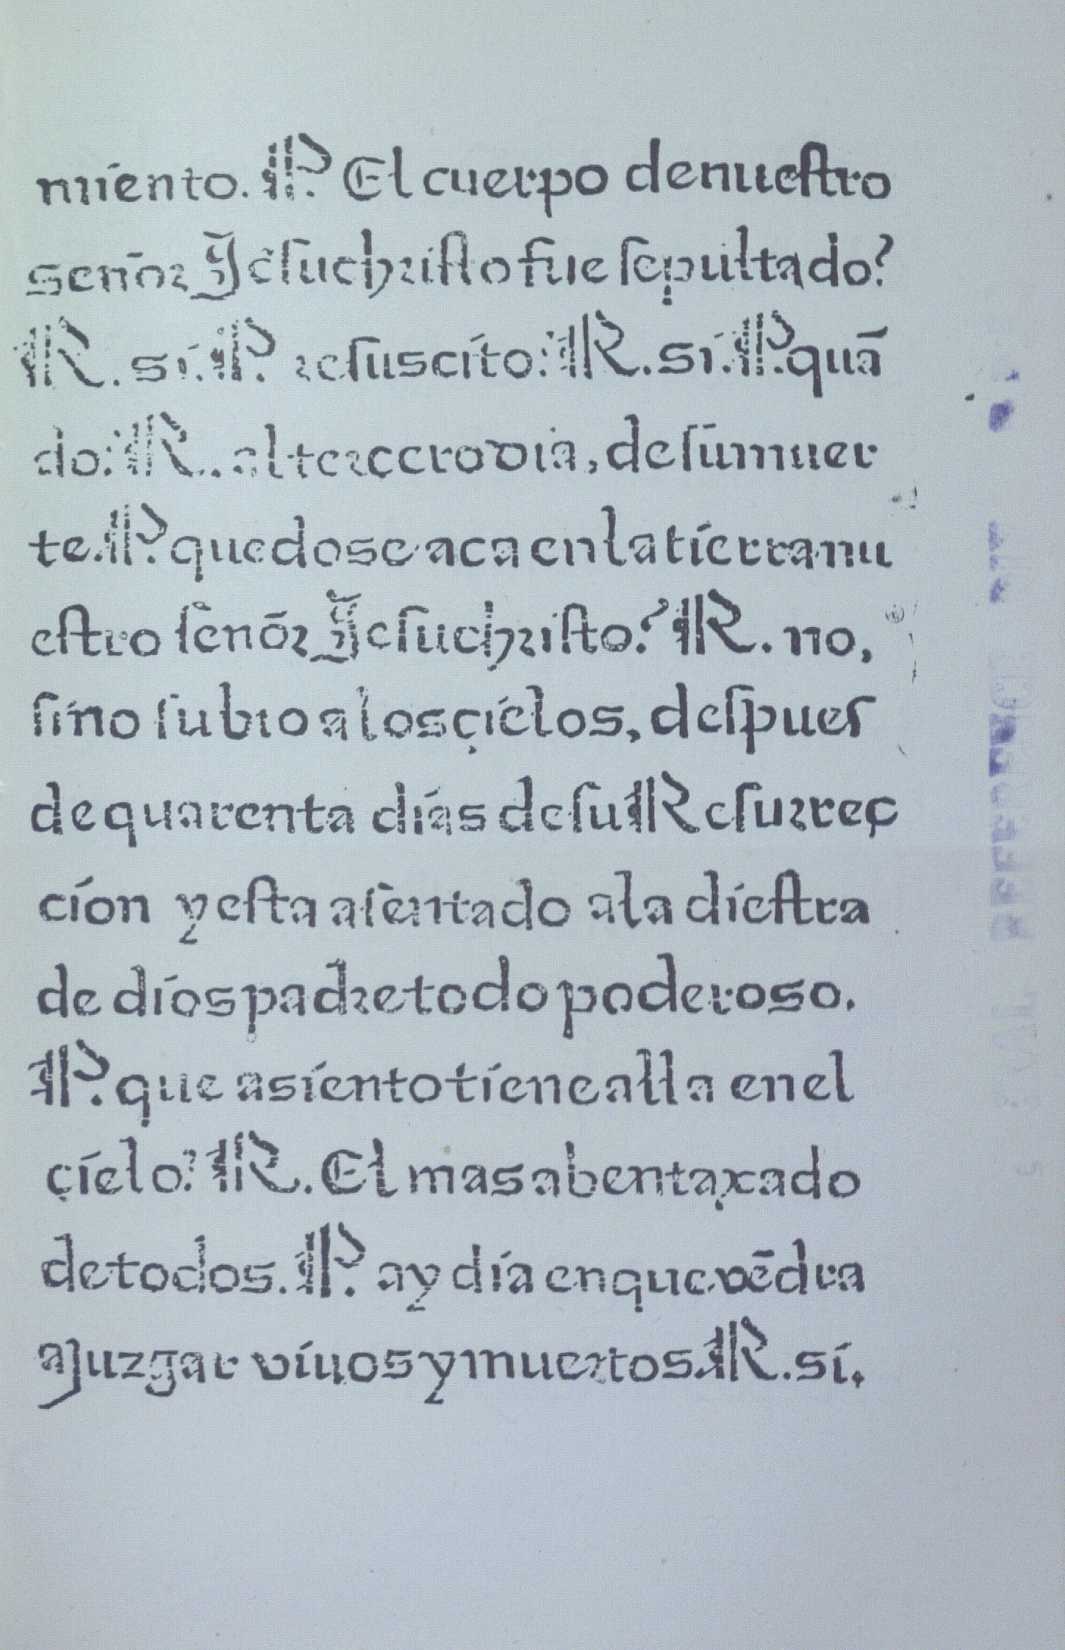 miento. P. El cuerpo denuestro
señor Jesuchristo fue sepultado?
R. si. P. resuscito? R. si. P. quā
do? R.. al terçero dia, de sumuer
te. P. quedose aca enlatierranu
estro señor Jesuchristo? R. no,
sino subio alosçielos, despues
dequarenta dias desu Resurreç
cion y esta asentado ala diestra
de dios padre todo poderoso.
P. que asiento tiene alla enel
çielo? R. El mas abentaxado
detodos. P. ay dia enque vēdra
aJuzgar viuos ymuertos. R. si.